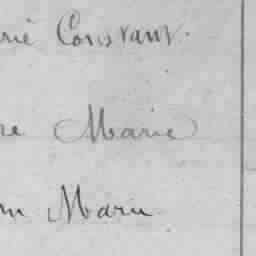 rie Constant.
re Marie
m Marie